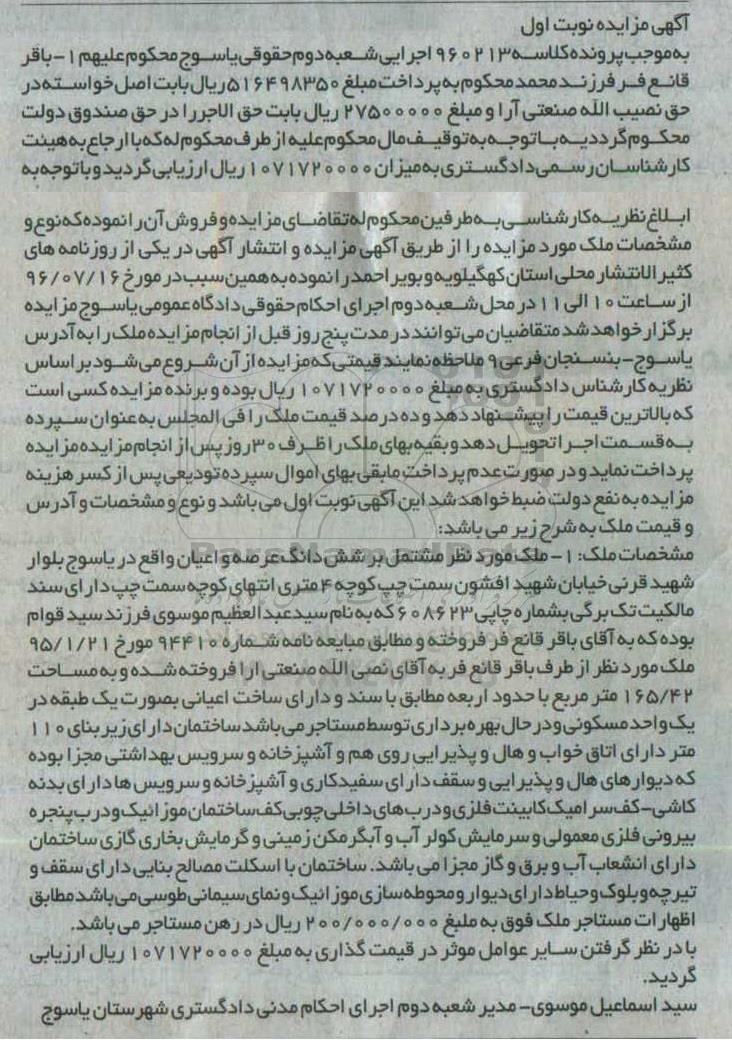 آگهی مزایده نوبت اول
به موجب پرونده کلاسه ۹۶۰۲۱۳ اجرایی شعبه دوم حقوقی یاسوج محکوم علیهم ۱- باقر
قانع فر فرزند محمد محکوم به پرداخت مبلغ ۵۱۶۴۹۸۳۵۰ ریال بابت اصل خواسته در
حق نصیب الله صنعتی آرا و مبلغ ۲۷۵۰۰۰۰۰ ریال بابت حق الاجررا در حق صندوق دولت
محکوم گردد یه با توجه به توقیف مال محکوم علیه از طرف محکوم له که با ارجاع به هیئت
کارشناسان رسمی دادگستری به میزان ۱۰۷۱۷۲۰۰۰۰ ریال ارزیابی گردید و با توجه به
ابلاغ نظریه کارشناسی به طرفین محکوم له تقاضای مزایده و فروش آن را نموده که نوع و
مشخصات ملک مورد مزایده را از طریق آگهی مزایده و انتشار آگهی در یکی از روزنامه های
کثیر الانتشار محلی استان کهگیلویه و بویر احمد را نموده به همین سبب در مورخ ۹۶/۰۷/۱۶
از ساعت ۱۰ الی ۱۱ در محل شعبه دوم اجرای احکام حقوقی دادگاه عمومی یاسوج مزایده
برگزار خواهد شد متقاضیان می توانند در مدت پنج روز قبل از انجام مزایده ملک را به آدرس
یاسوج- بنسنجان فرعی ۹ ملاحظه نمایند قیمتی که مزایده از آن شروع می شود بر اساس
نظریه کارشناس دادگستری به مبلغ ۱۰۷۱۷۲۰۰۰۰ ریال بوده و برنده مزایده کسی است
که بالاترین قیمت را پیشنهاد دهد و ده درصد قیمت ملک را فی المجلس به عنوان سپرده
به قسمت اجرا تحویل دهد و بقیه بهای ملک را ظرف ۳۰ روز پس از انجام مزایده مزایده
پرداخت نماید و در صورت عدم پرداخت مابقی بهای اموال سپرده تودیعی پس از کسر هزینه
مزایده به نفع دولت ضبط خواهد شد این آگهی نوبت اول می باشد و نوع و مشخصات و آدرس
و قیمت ملک به شرح زیر می باشد:
مشخصات ملک: ۱- ملک مورد نظر مشتمل بر شش دانگ عرصه و اعیان واقع در یاسوج بلوار
شهید قرنی خیابان شهید افشون سمت چپ کوچه ۴ متری انتهای کوچه سمت چپ دارای سند
مالکیت تک برگی بشماره چاپی ۶۰۸۶۲۳ که به نام سید عبدالعظیم موسوی فرزند سید قوام
بوده که به آقای باقر قانع فر فروخته و مطابق مبایعه نامه شماره ۹۴۴۱۰ مورخ ۹۵/۱/۲۱
ملک مورد نظر از طرف باقر قانع فر به آقای نصی الله صنعتی ارا فروخته شده و به مساحت
۱۶۵/۴۲ متر مربع با حدود اربعه مطابق با سند و دارای ساخت اعیانی بصورت یک طبقه در
یک واحد مسکونی و در حال بهره برداری توسط مستاجر می باشد ساختمان دارای زیر بنای ۱۱۰
متر دارای اتاق خواب و هال و پذیرایی روی هم و آشپزخانه و سرویس بهداشتی مجزا بوده
که دیوارهای هال و پذیرایی و سقف دارای سفیدکاری و آشپزخانه و سرویس ها دارای بدنه
کاشی- کف سرامیک کابینت فلزی و درب های داخلی چوبی کف ساختمان موزائیک و درب پنجره
بیرونی فلزی معمولی و سرمایش کولر آب و آبگرمکن زمینی و گرمایش بخاری گازی ساختمان
دارای انشعاب آب و برق و گاز مجزا می باشد. ساختمان با اسکلت مصالح بنایی دارای سقف و
تیرچه و بلوک و حیاط دارای دیوار و محوطه سازی موزائیک و نمای سیمانی طوسی می باشد مطابق
اظهارات مستاجر ملک فوق به ملبغ ۲۰۰/۰۰۰/۰۰۰ ریال در رهن مستاجر می باشد.
با در نظر گرفتن سایر عوامل موثر در قیمت گذاری به مبلغ ۱۰۷۱۷۲۰۰۰۰ ریال ارزیابی
گردید.
سید اسماعیل موسوی- مدیر شعبه دوم اجرای احکام مدنی دادگستری شهرستان یاسوج